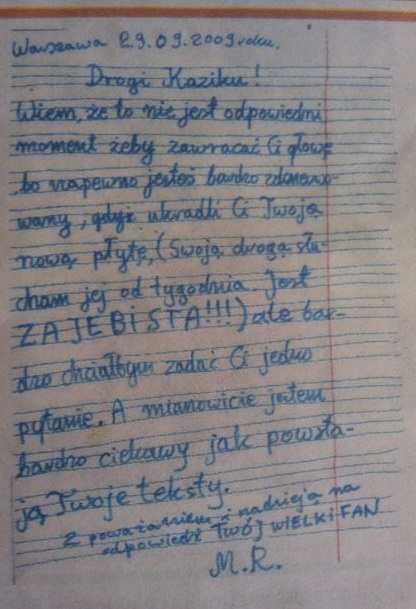 Warszawa 29.09.2009 roku.
Drogi Kaziku!
Wiem, że to nie jest odpowiedni
moment żeby zawracać Ci głowę
bo napewno jesteś bardzo zdenerwo-
wany, gdyż ukradli Ci Twoją
nową płytę, (Swoją drogą słu-
cham jej od tygodnia. Jest
ZAJEBISTA!!!) ale bar-
dzo chciałbym zadać Ci jedno
pytanie. A mianowicie jestem
bardzo ciekawy jak powsta-
ją Twoje teksty.
Z poważaniem i nadzieją na
odpowiedź TWÓJ WIELKI FAN
M.R.